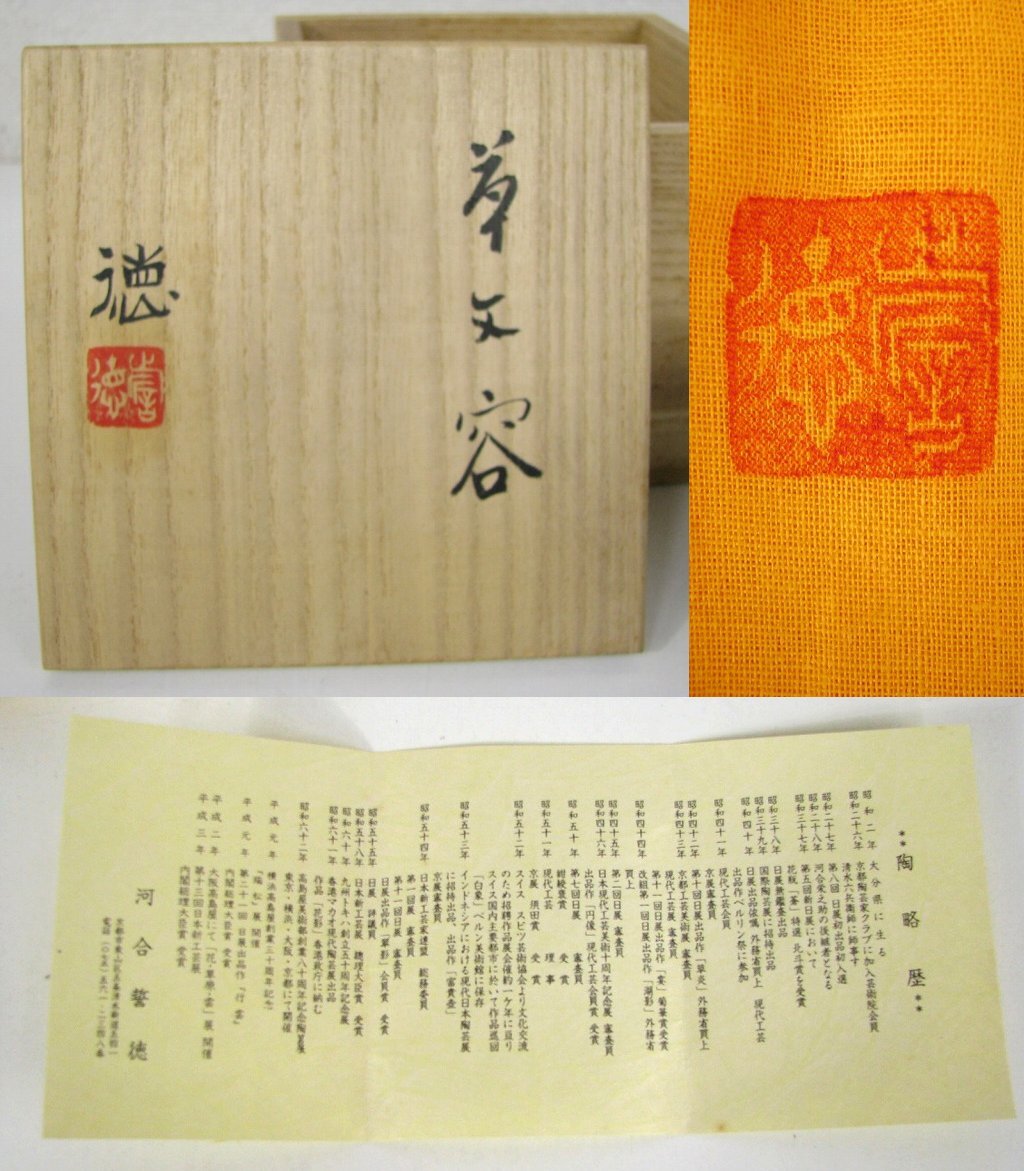 草文容
徳
誓徳
**陶略歴**
昭和二年 大分県に生る
昭和二十六年 京都陶芸家クラブに加入芸術院会員
清水六兵衛師に師事す
昭和二十七年 第八回日展初出品初入選
昭和二十八年 河合栄之助の後継者となる
昭和三十七年 第五回新日展において
花瓶「蒼」特選 北斗賞を受賞
昭和三十八年 日展無鑑査出品
昭和三十九年 国際陶芸展に招待出品
日展出品依嘱 外務省買上 現代工芸
昭和四十年 出品作ベルリン祭に参加
昭和四十一年 現代工芸会員
京展審査員
昭和四十二年 第十回日展出品作「草炎」外務省買上
昭和四十三年 京都工芸美術展 審査員
現代工芸展 審査員
第十一回日展出品作「宴」菊華賞受賞
昭和四十四年 改組第一回日展出品作「湖影」外務省
買上
昭和四十五年 第二回日展 審査員
昭和四十六年 日本現代工芸美術展十周年記念展 審査員
出品作「円像」現代工芸会員賞 受賞
昭和五十年 第七回日展 審査員
紺綬褒賞 受賞
昭和五十一年 現代工芸 理事
京展 須田賞 受賞
昭和五十二年 スイス スピッツ芸術協会より文化交流
のため招聘作品展会催約一ケ年に亘り
スイス国内主要都市に於いて作品巡回
「白象」ベルン美術館に保存
昭和五十三年 インドネシアにおける現代日本陶芸展
に招待出品、出品作「富貴壺」
京展審査員
昭和五十四年 日本新工芸家連盟 総務委員
第一回展 審査員
第十一回日展 審査員
昭和五十五年 日展 評議員
日展出品作「翠影」会員賞 受賞
昭和五十八年 日本新工芸展 総理大臣賞 受賞
昭和六十年 九州トキハ創立五十周年記念展
昭和六十一年 香港マカオ現代陶芸展出品
作品「花影」香港政府に納む
昭和六十二年 高島屋美術部創業八十周年記念陶芸展
東京・横浜・大阪・京都にて開催
平成元年 横浜高島屋創業三十周年記念
「端松」展 開催
平成元年 第二十一回日展出品作「行雲」
内閣総理大臣賞 受賞
平成二年 大阪高島屋にて「花・草原・雲」展 開催
平成三年 第十三回日本新工芸展
内閣総理大臣賞 受賞
河合誓徳
京都市東山区五条清水新道五四一
電話(〇七五)五六一-二三四八番